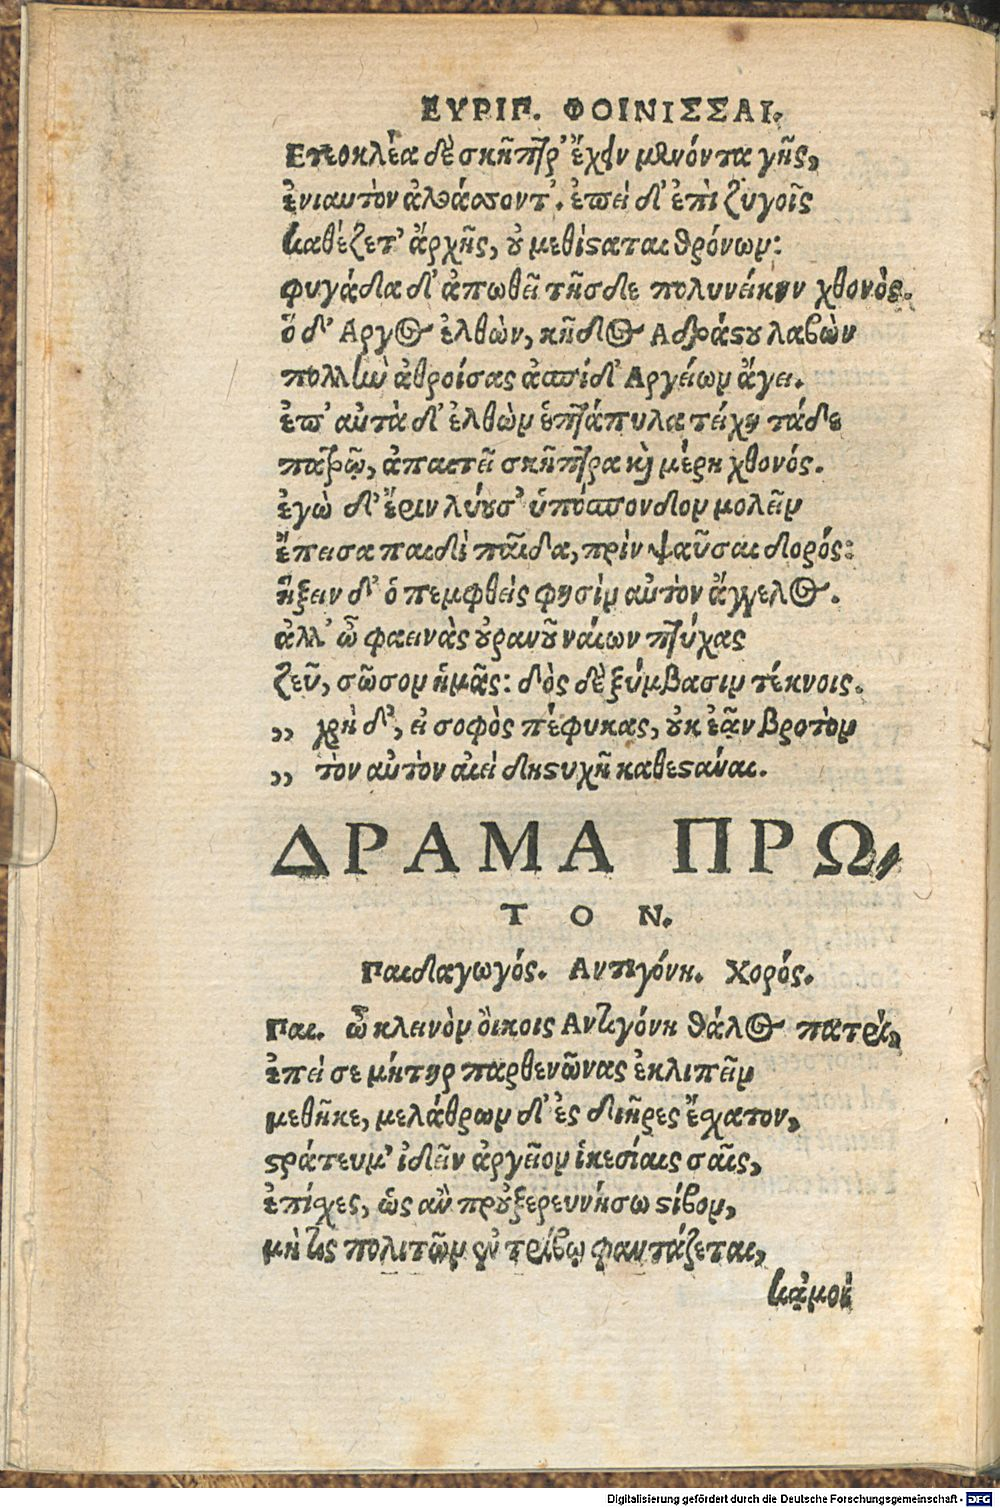 ΕΥΡΙΠ. ΦΟΙΝΙΣΣΑΙ.
Ετεοκλέα δὲ σκῆπτρ' ἔχειν μένοντα γῆς,
ἐνιαυτὸν ἀλλάσσοντ'. ἐπεὶ δ' ἐπὶ ζυγοῖς
καθέζετ' ἄρχῆς, οὐ μεθίσταται θρόνων:
φυγάδα δ' ἀπωθεῖ τῆσδε πολυνείκην χθονὸς.
ὅ δ' Αργος ἐλθὼν, κῆδος Αδράστου λαβὼν
πολλὴν ἀθροίσας ἀσπίδ' Αργείων ἄγει.
ἐπ' αὐτὰ δ' ἐλθὼν ἑπτάπυλα τείχη τάδε
πατρῷ, ἀπαιτεῖ σκῆπτρα καὶ μέρη χθονός.
ἐγὼ δ' ἔριν λύουσ' ὑπόσπονδον μολεῖν
ἔπεισα παιδὶ παῖδα, πρὶν ψαῦσαι δορός:
ἥξειν δ' ὁ πεμφθείς φησὶν αὐτὸν ἄγγελος.
ἀλλ' ὦ φαεινὰς οὐρανοῦ ναίων πτύχας
ζεῦ, σῶσον ἡμᾶς: δὸς δὲ ξύμβασιν τέκνοις.
,, χρὴ δ', εἰ σοφὸς πέφυκας, οὐκ ἐᾷν βροτὸν
,, τὸν αὐτὸν αἰεὶ δυστυχῆ καθεστάναι.
ΔΡΑΜΑ ΠΡΩ-
ΤΟΝ.
Παιδαγωγός. Αντιγόνη. Χορός.
Παι. ὦ κλεινὸν οἴκοις Αντιγόνη θάλος πατρὶ,
ἐπεί σε μήτηρ παρθενῶνας ἐκλιπεῖν
μεθῆκε, μελάθρων δ' ἐς διῆρες ἔσχατον,
στράτευμ' ἰδεῖν ἀργεῖον ἱκεσίαις σαῖς,
ἐπίσχες, ὡς ἂν προὐξερευνήσω στίβον,
μὴ τις πολιτῶν ἐν τρίβῳ φαντάζεται,
κᾀμοὶ
Digitalisierung gefördert durch die Deutsche Forschungsgemeinschaft - DFG